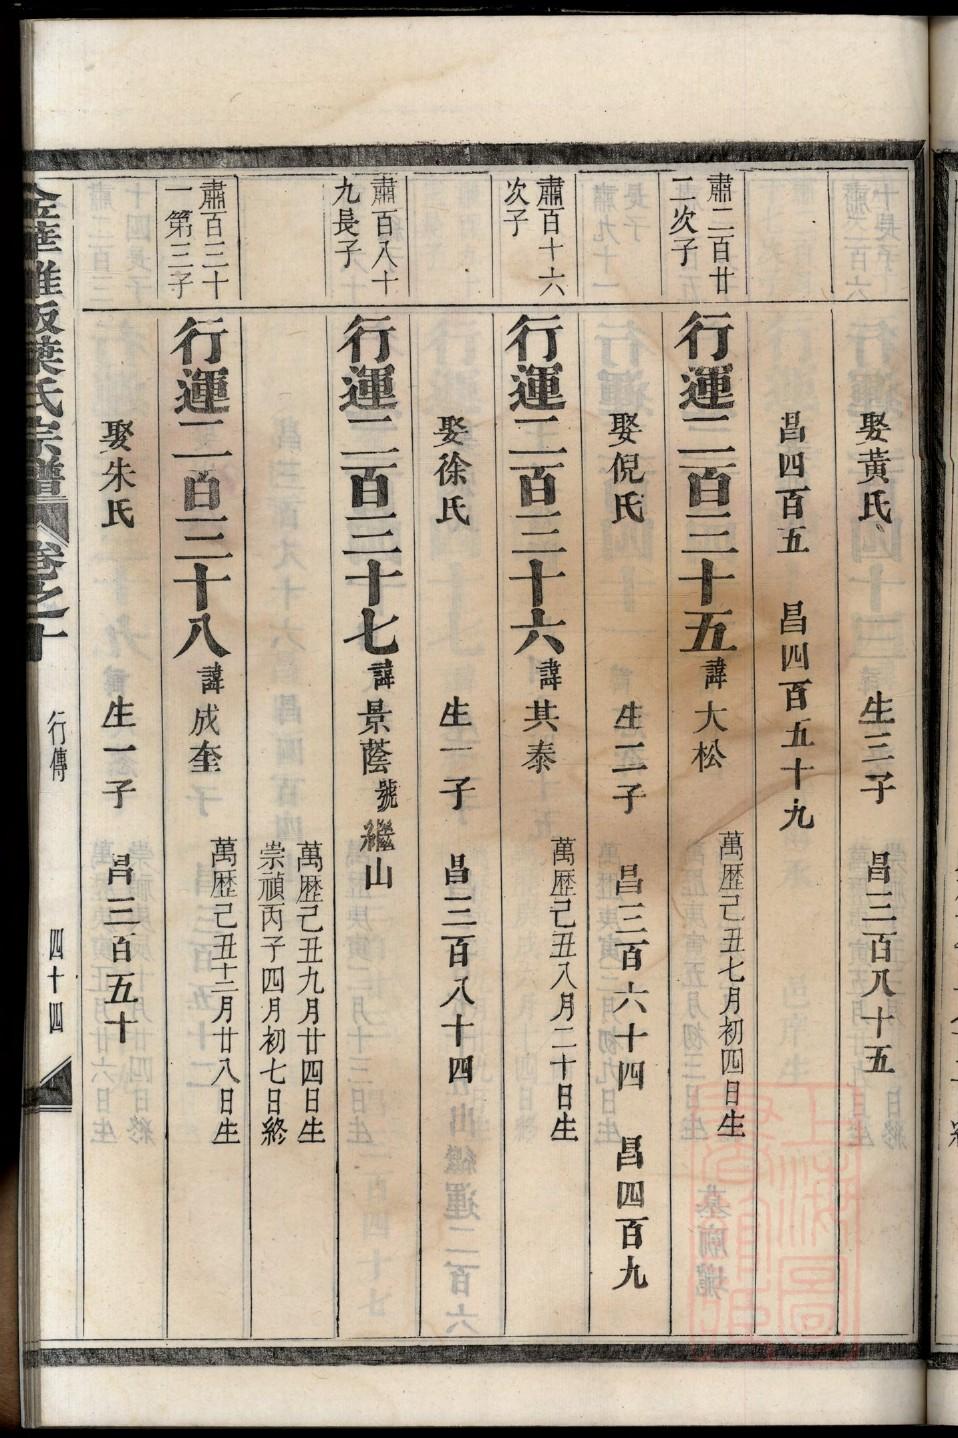 娶黃氏 生三子 昌三百八十五
昌四百五 昌四百五十九
肅二百廿
二次子
行運二百三十五 諱大松 萬歷己丑七月初四日生
娶倪氏 生二子 昌三百六十四 昌四百九
肅百十六
次子
行運二百三十六 諱其泰 萬歷己丑八月二十日生
娶徐氏 生一子 昌三百八十四
肅百八十
九長子
行運二百三十七 諱景蔭 號繼山 萬歷己丑九月廿四日生
崇禎丙子四月初七日終
肅百三十
一第三子
行運二百三十八 諱成奎 萬歷己丑十二月廿八日生
娶朱氏 生一子 昌三百五十
葉氏宗譜 卷之十 行傳 四十四